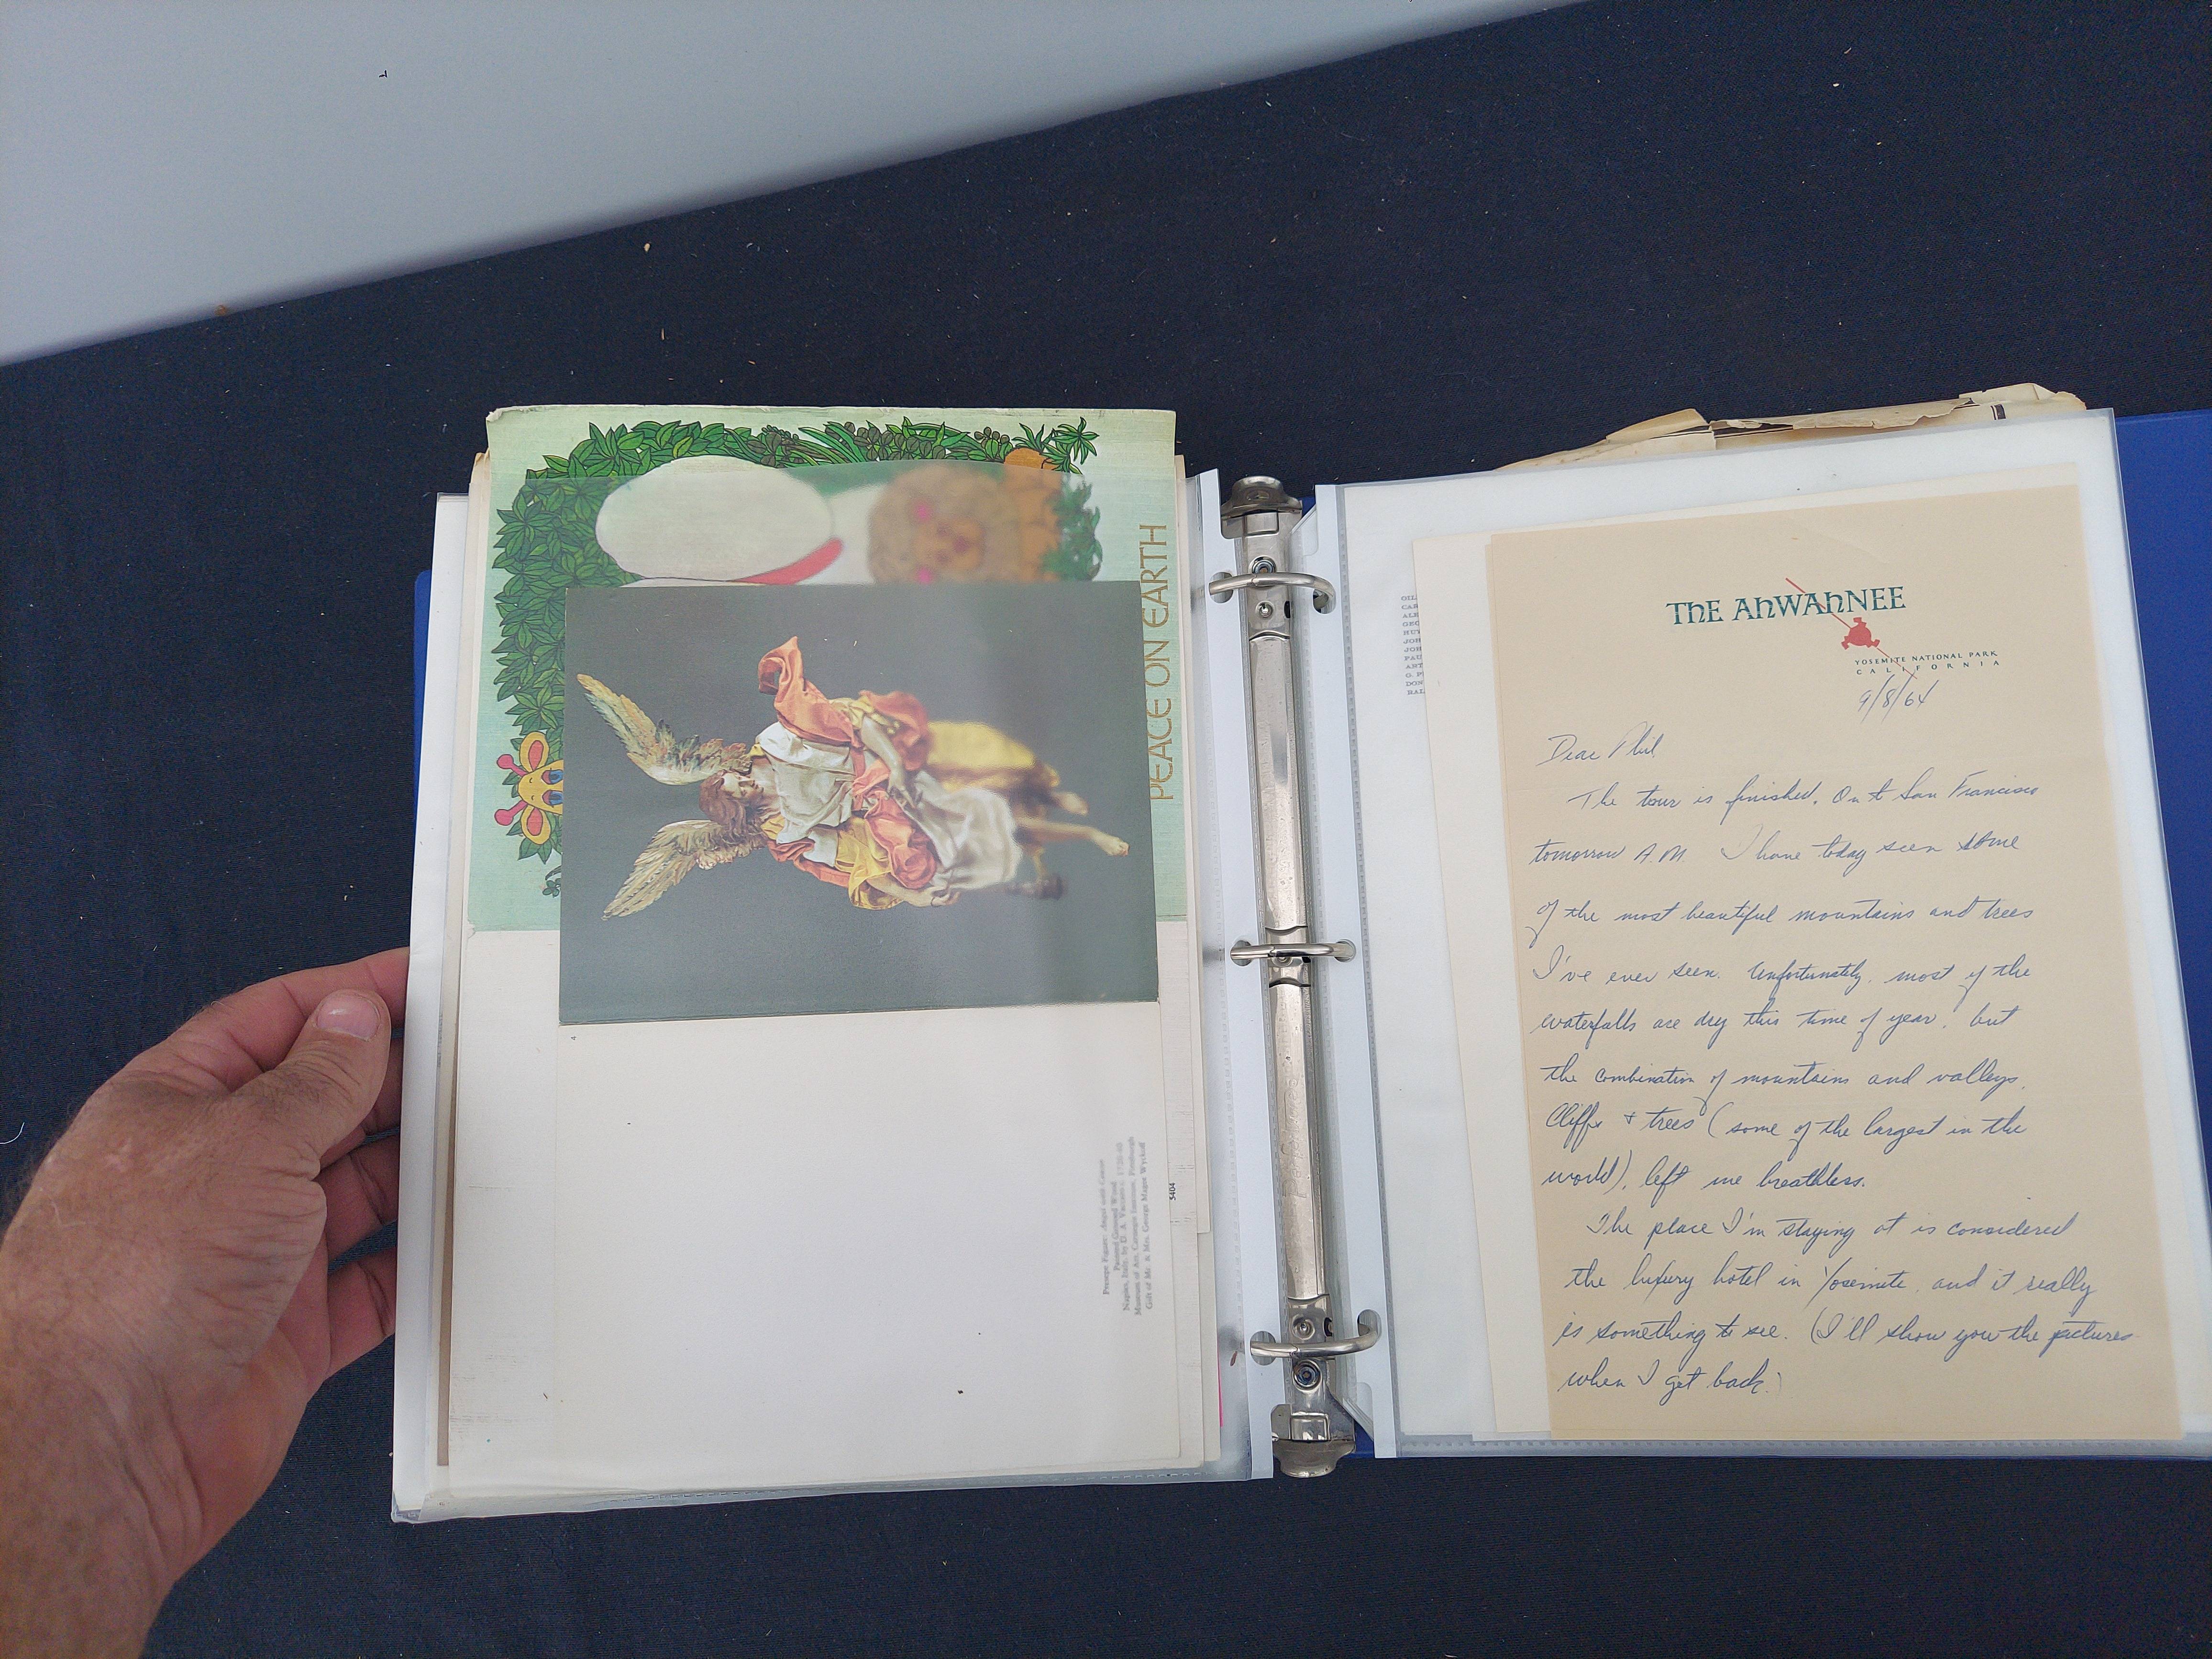 PEACE ON EARTH
4
Presepe Figure: Angel with Censer
Painted Carved Wood
Naples, Italy, by D. A. Vaccaro, 1720-40
Museum of Art, Carnegie Institute, Pittsburgh
Gift of Mr. & Mrs. George Magee Wyckoff
5404
GIL
CAR
ALE
GEO
HUY
JOH
JOH
PAU
ART
G. P
DON
RAL
THE AHWAHNEE
YOSEMITE NATIONAL PARK
CALIFORNIA
9/8/64
Dear Phil
The tour is finished. On to San Francisco
tomorrow A.M. I have today seen some
of the most beautiful mountains and trees
I've ever seen. Unfortunately, most of the
waterfalls are dry this time of year, but
the combination of mountains and valleys,
Cliffs + trees (some of the largest in the
world), left me breathless.
The place I'm staying at is considered
the luxury hotel in Yosemite, and it really
is something to see. (I'll show you the pictures
when I get back.)